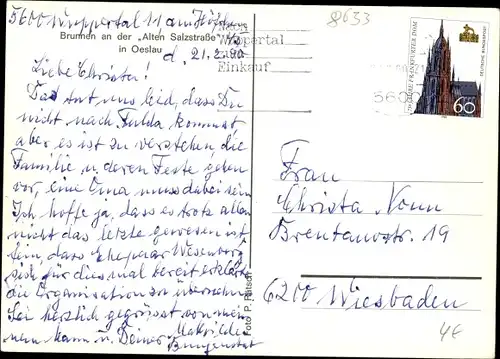 5600 Wuppertal 11 am
Brunnen an der „Alten Salzstraße"
in Oeslau
d. 21.2.90
Liebe Christa!
Das tut uns leid, dass Du
nicht nach Fulda kommst
aber es ist zu verstehen die
Familie u. deren Feste gehen
vor, eine Oma muss dabei sein
Ich hoffe ja, dass es trotz allem
nicht das letzte gewesen ist
dass Ehepaar
sich für diesmal bereit erklärte
die Organisation zu übernehmen
Sei herzlich gegrüsst von meinem
Mann u. Deiner Mathilde
Foto P. Patsch
Nach
Wuppertal
zum
Einkauf
5600
8633
FRANKFURTER DOM
DEUTSCHE BUNDESPOST
60
Frau
Christa Nonn
Brentanostr. 19
6200 Wiesbaden
4€